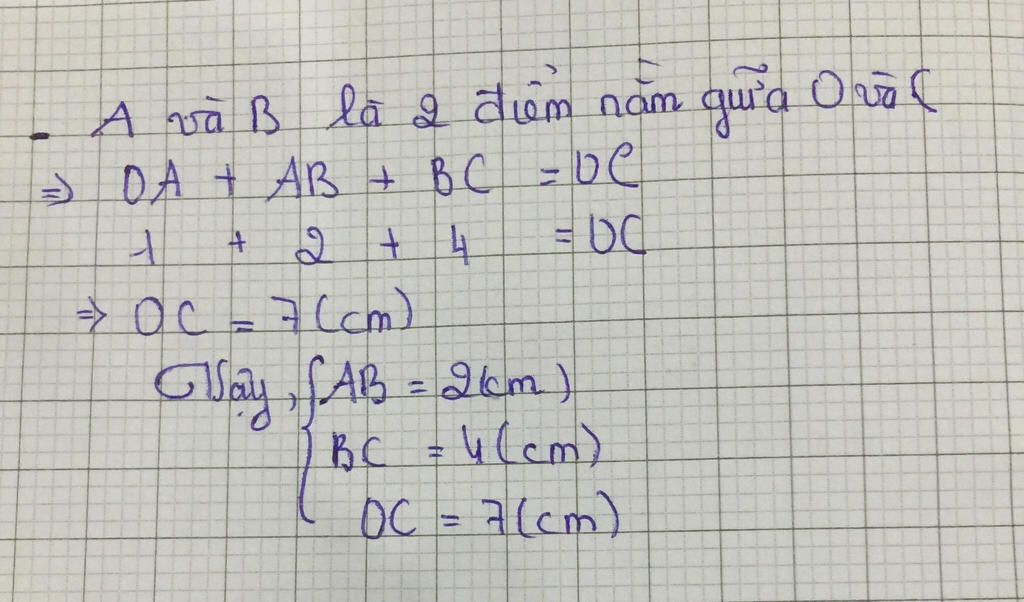 - A và B là 2 điểm nằm giữa O và C
⇒ OA + AB + BC = OC
1 + 2 + 4 = OC
⇒ OC = 7 (cm)
Vậy, { AB = 2 (cm)
BC = 4 (cm)
OC = 7 (cm)